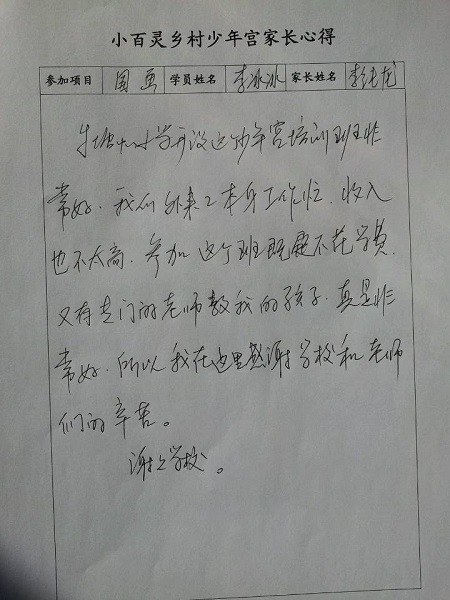 小百灵乡村少年宫家长心得
参加项目 国画 学员姓名 李冰冰 家长姓名 李龙
小学开设这少年宫培训班非
常好.我们外来工本身工作忙.收入
也不太高.参加这个班既不花学费.
又有专门的老师教我的孩子.真是非
常好.所以我在这里感谢学校和老师
们的辛苦。
谢谢学校。